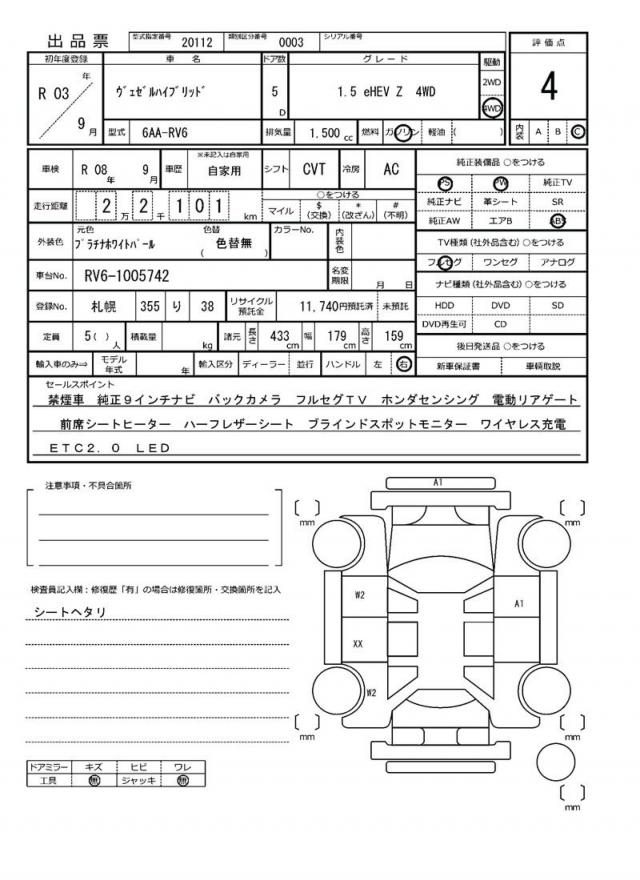 出品票 型式指定番号 20112 類別区分番号 0003 シリアル番号
評価点
4
内装 A B C
初年度登録 車名 ドア数 グレード 駆動
R 03 年 9 月 ヴェゼルハイブリッド 5 D 1.5 eHEV Z 4WD 2WD 4WD
型式 6AA-RV6 排気量 1.500 cc 燃料 ガソリン 軽油 ( )
車検 R 08 年 9 月 車歴 ※未記入は自家用 自家用 シフト CVT 冷房 AC
走行距離 2 万 2 千 1 0 1 km ○をつける マイル $(交換) *(改ざん) #(不明)
外装色 元色 プラチナホワイトパール 色替 ( 色替無 ) カラーNo. 内装色
車台No. RV6-1005742 名変期限 月 日
登録No. 札幌 355 り 38 リサイクル預託金 11,740円預託済 未預託
定員 5( ) 人 積載量 kg 諸元 長さ 433 cm 幅 179 cm 高さ 159 cm
輸入車のみ⇒ モデル年式 年 輸入区分 ディーラー 並行 ハンドル 左 右
純正装備品 ○をつける
PS PW 純正TV
純正ナビ 革シート SR
純正AW エアB ABS
TV種類(社外品含む)○をつける
フルセグ ワンセグ アナログ
ナビ種類(社外品含む)○をつける
HDD DVD SD
DVD再生可 CD
後日発送品 ○をつける
新車保証書 車輌取説
セールスポイント
禁煙車 純正9インチナビ バックカメラ フルセグTV ホンダセンシング 電動リアゲート
前席シートヒーター ハーフレザーシート ブラインドスポットモニター ワイヤレス充電
ETC2.0 LED
注意事項・不具合箇所
検査員記入欄:修復歴「有」の場合は修復箇所・交換箇所を記入
シートヘタリ
ドアミラー キズ ヒビ ワレ
工具 無 ジャッキ 無
A1
[ ] mm
[ ] mm
W2
A1
XX
W2
[ ] mm
[ ] mm
[ ] mm